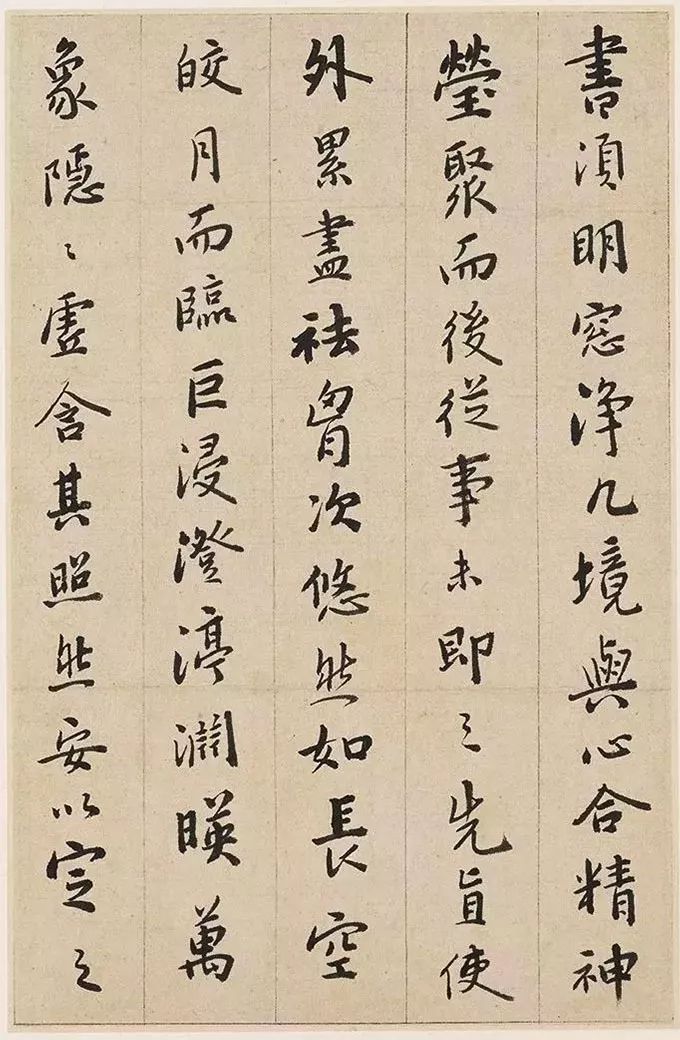 書須明窓浄几境與心合精神
瑩聚而後從事未即之先宜使
外累盡祛胷次悠然如長空
皎月而臨巨浸澄渟澗暎萬
象隱〻虛含其照然安以定之